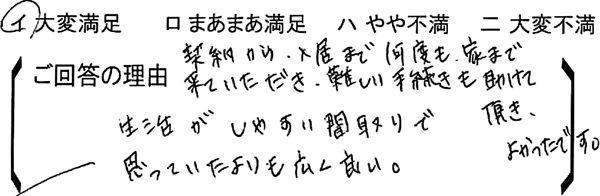 イ 大変満足 ロ まあまあ満足 ハ やや不満 ニ 大変不満
ご回答の理由
契約から、入居まで何度も、家まで
来ていただき、難しい手続きも助けて
頂き、
よかったです。
生活がしやすい間取りで
思っていたよりも広く良い。